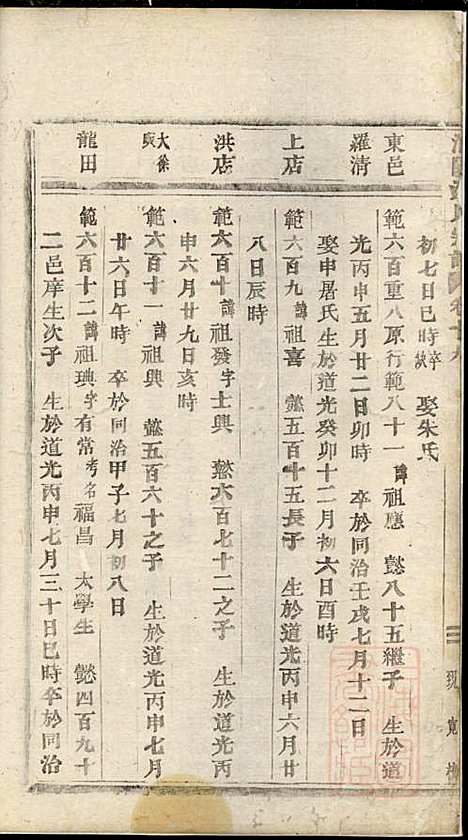 卷十九
初七日巳時卒缺 娶朱氏
東邑 範六百重八原行範八十一諱祖應 懿八十五繼子 生於道
羅清 光丙申五月廿二日卯時 卒於同治壬戌七月十二日
娶申屠氏生於道光癸卯十二月初六日酉時
上店 範六百九諱祖喜 懿五百十五長子 生於道光丙申六月廿
八日辰時
洪店 範六百十諱祖發字士興 懿六百七十二之子 生於道光丙
申六月廿九日亥時
大徐 範六百十一諱祖興 懿五百六十之子 生於道光丙申七月
廿六日午時 卒於同治甲子七月初八日
龍田 範六百十二諱祖琠字有常考名福昌 太學生 懿四百九十
二邑庠生次子 生於道光丙申七月三十日巳時卒於同治